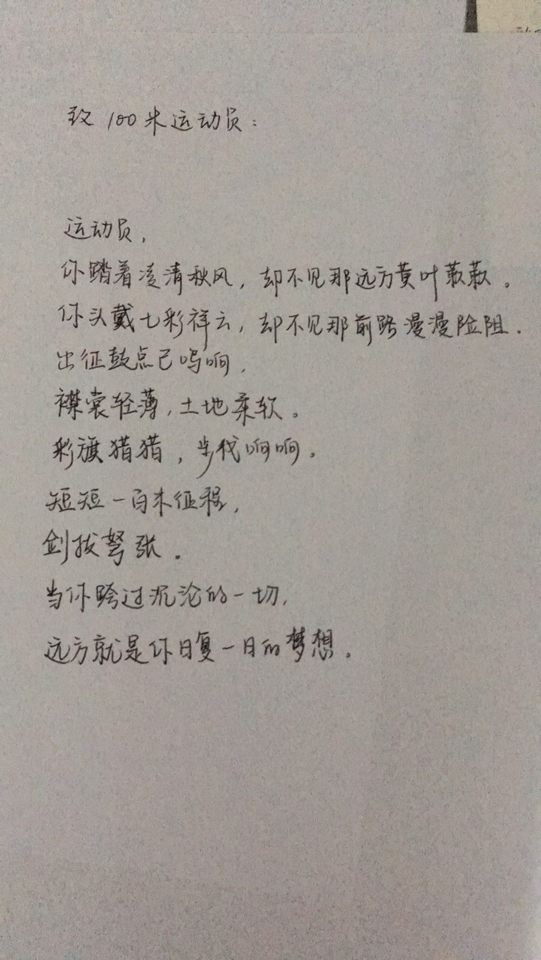 致100米运动员：
运动员，
你踏着凌清秋风，却不见那远方黄叶蔌蔌。
你头戴七彩祥云，却不见那前路漫漫险阻.
出征鼓点已鸣响，
襟裳轻薄，土地柔软。
彩旗猎猎，步伐响响。
短短一百米征程，
剑拔弩张。
当你跨过沉沦的一切，
远方就是你日复一日的梦想。